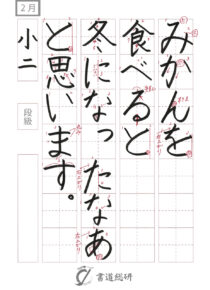 みかんを
食べると
冬になったなあ
と思います。
2月
小二
段級
書道総研